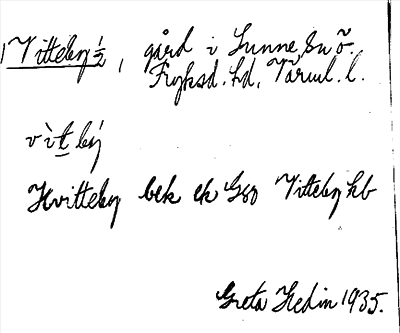 Vitteby ½, gård i Sunne sn ö.
Fryksd. hd, Värml. l.
vìt bý
Hvitteby bek ek G80 Vitteby kb
Greta Hedin 1935.